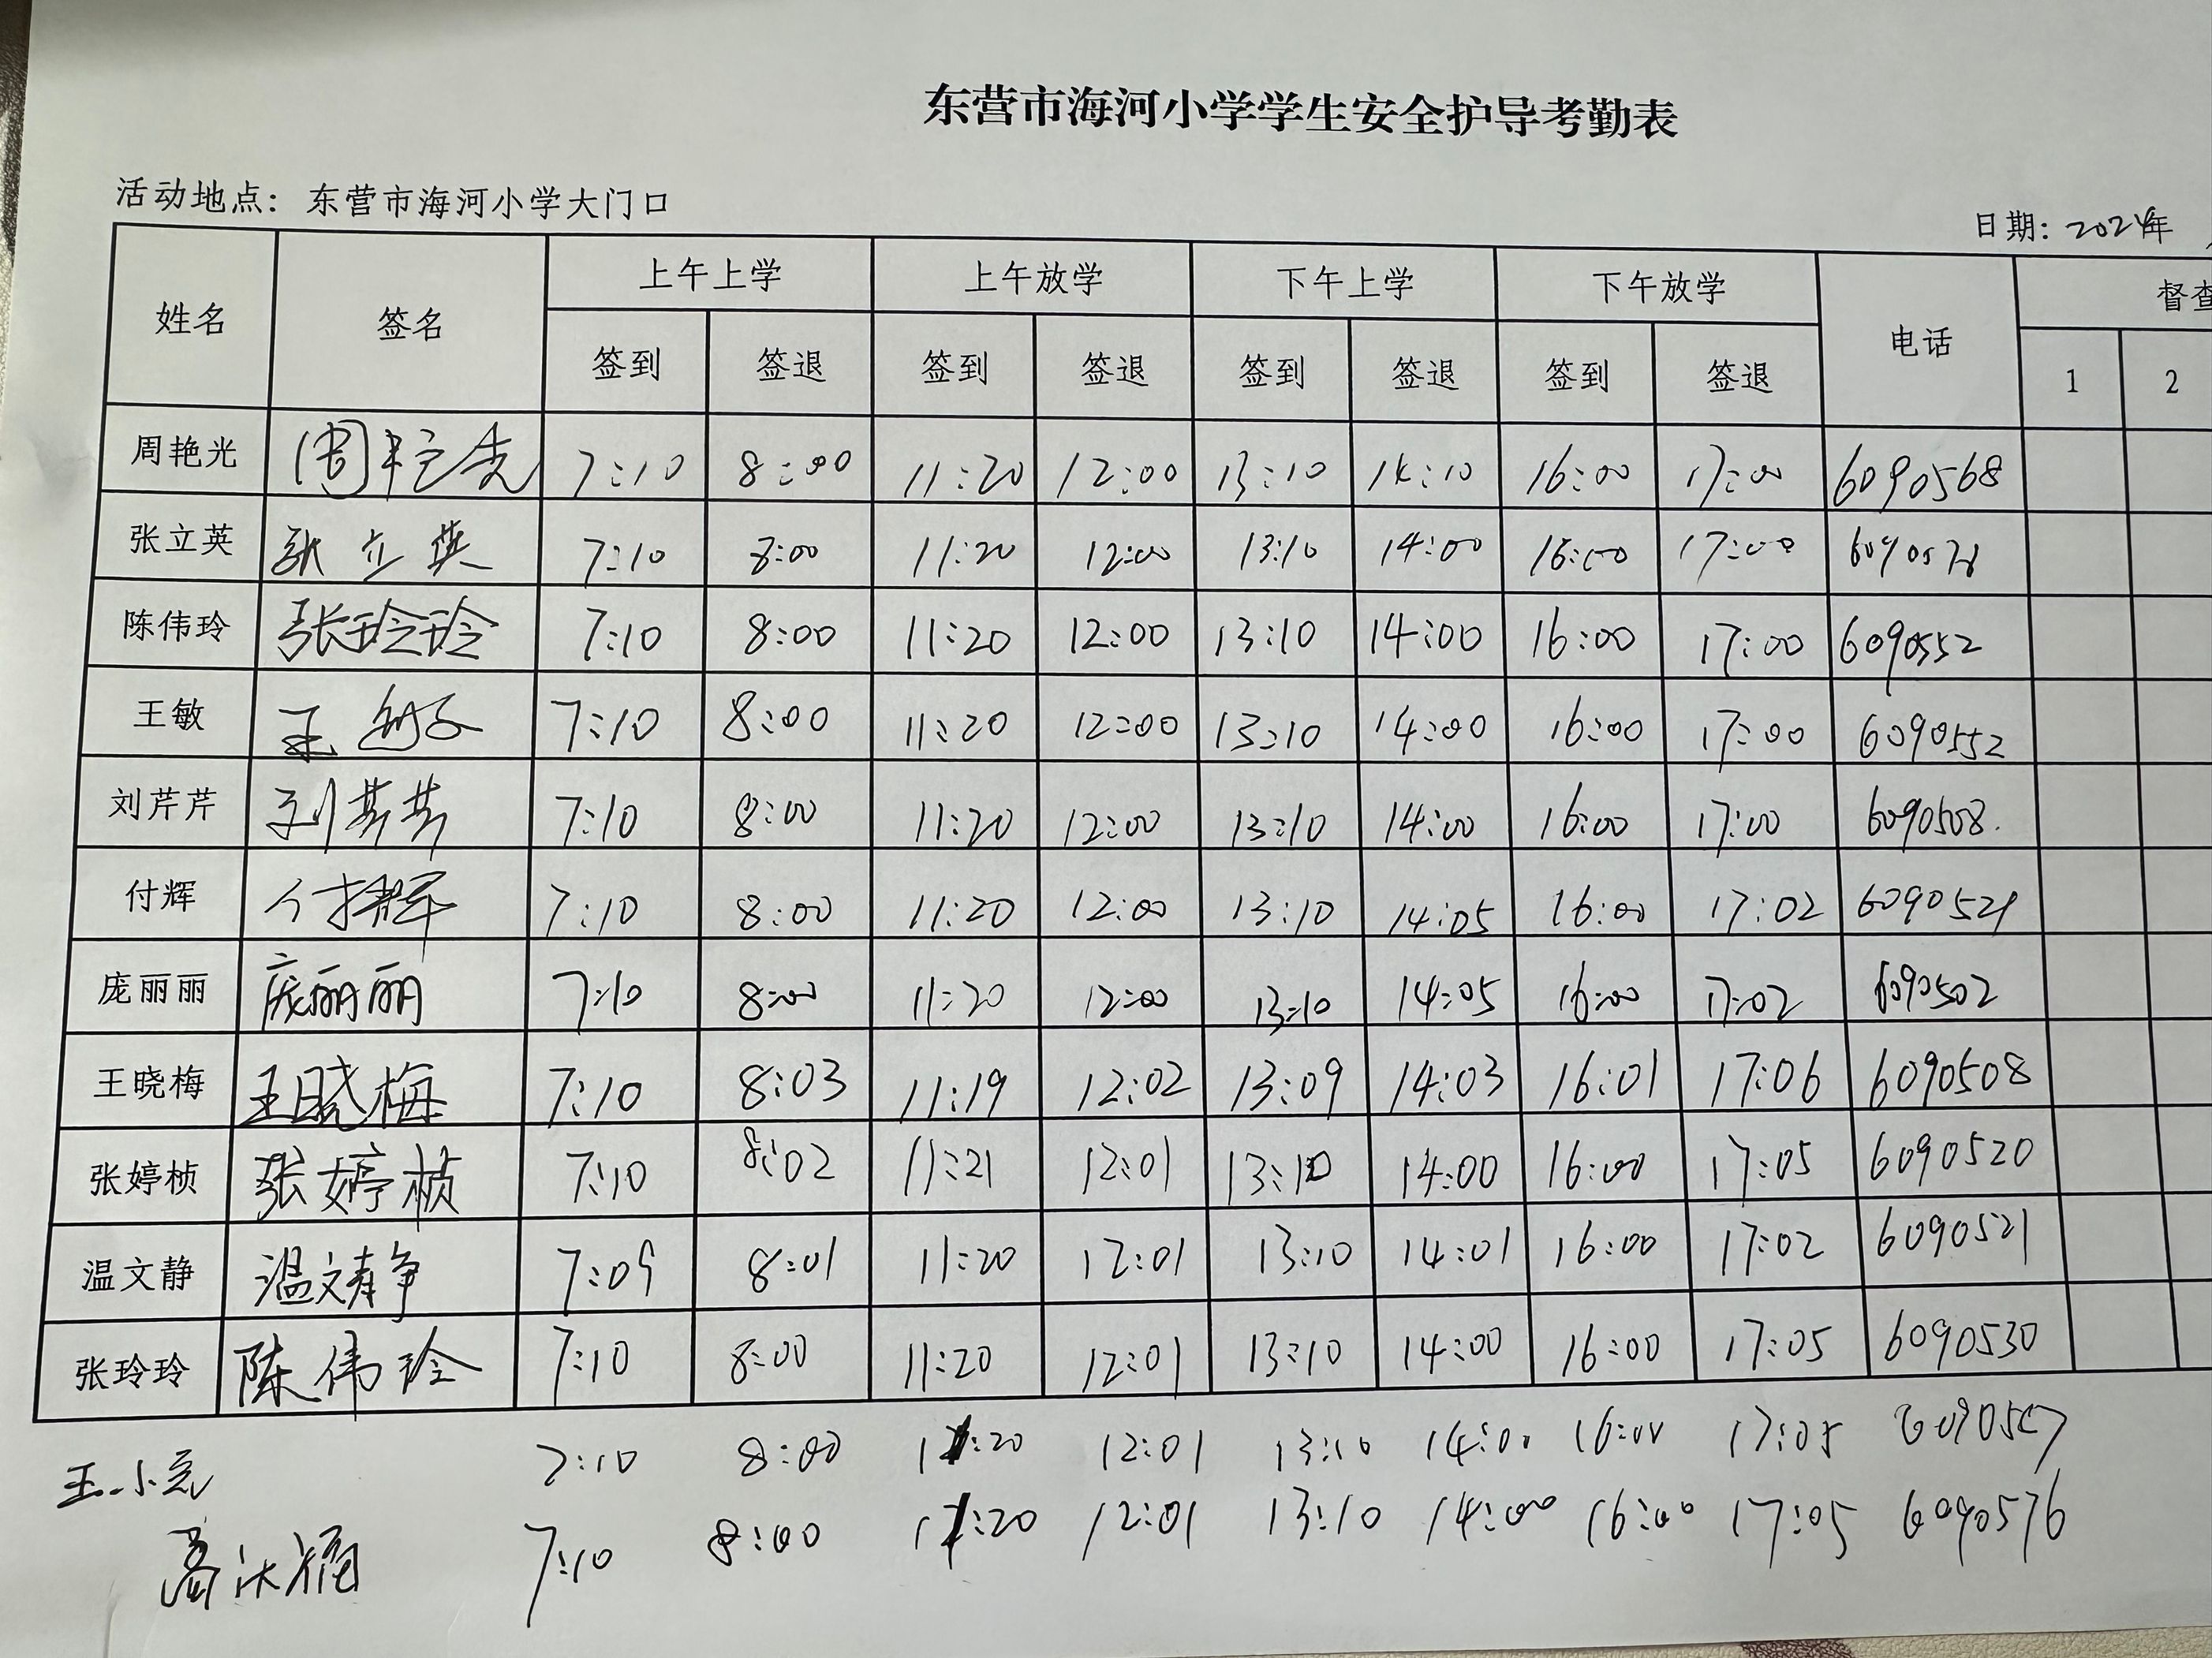 东营市海河小学学生安全护导考勤表
活动地点：东营市海河小学大门口
日期：2024年
姓名 签名 上午上学 上午放学 下午上学 下午放学 电话 督查
签到 签退 签到 签退 签到 签退 签到 签退 1 2
周艳光 周艳光 7:10 8:00 11:20 12:00 13:10 14:10 16:00 17:00 6090568
张立英 张立英 7:10 8:00 11:20 12:00 13:10 14:00 16:00 17:00
陈伟玲 张玲玲 7:10 8:00 11:20 12:00 13:10 14:00 16:00 17:00 6090552
王敏 王敏 7:10 8:00 11:20 12:00 13:10 14:00 16:00 17:00 6090552
刘芹芹 刘芹芹 7:10 8:00 11:20 12:00 13:10 14:00 16:00 17:00 6090508
付辉 付辉 7:10 8:00 11:20 12:00 13:10 14:05 16:00 17:02 6090521
庞丽丽 庞丽丽 7:10 8:00 11:20 12:00 13:10 14:05 16:00 17:02 6090502
王晓梅 王晓梅 7:10 8:03 11:19 12:02 13:09 14:03 16:01 17:06 6090508
张婷桢 张婷桢 7:10 8:02 11:21 12:01 13:10 14:00 16:00 17:05 6090520
温文静 温文静 7:09 8:01 11:20 12:01 13:10 14:01 16:00 17:02 6090521
张玲玲 陈伟玲 7:10 8:00 11:20 12:01 13:10 14:00 16:00 17:05 6090530
王小亮 7:10 8:00 11:20 12:01 13:10 14:00 16:00 17:05 6090567
7:10 8:00 11:20 12:01 13:10 14:00 16:00 17:05 6090576